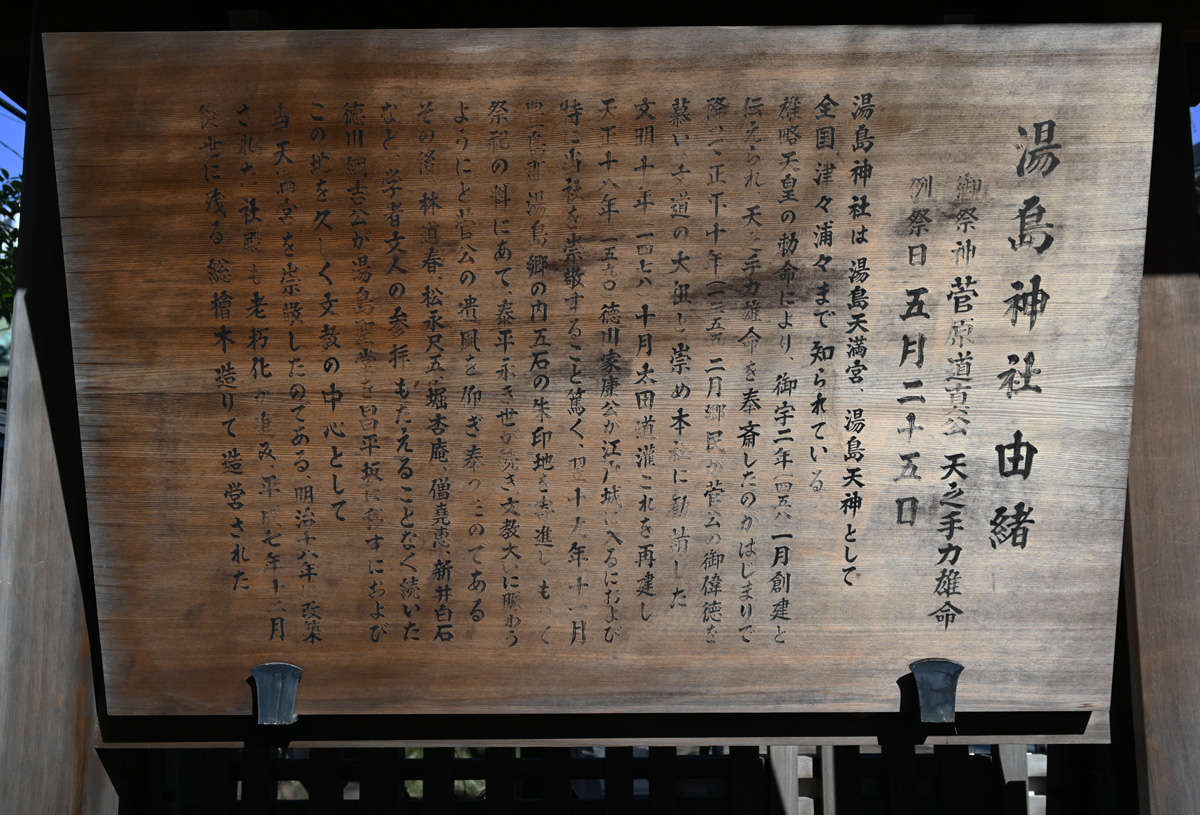 湯島神社由緒
御祭神 菅原道真公 天之手力雄命
例祭日 五月二十五日
湯島神社は湯島天満宮、湯島天神として
全国津々浦々まで知られている
雄略天皇の勅命により、御宇二年(四五八)一月創建と
伝えられ、天之手力雄命を奉斎したのがはじまりで
降って正平十年(一三五五)二月郷民が菅公の御偉徳を
慕い文道の大祖と崇め本社に勧請した
文明十年(一四七八)十月太田道灌これを再建し
天正十八年(一五九〇)徳川家康公が江戸城に入るにおよび
特に当社を崇敬すること篤く、翌十九年十一月
豊島郡湯島郷の内五石の朱印地を寄進し もって
祭祀の料にあて、泰平永き世が続き文教大いに賑わう
ようにと菅公の遺風を仰ぎ奉ったのである
その後、林道春、松永尺五、堀杏庵、僧堯恵、新井白石
など、学者文人の参拝もたえることなく続いた
徳川綱吉公が湯島聖堂を昌平坂に移すにおよび
この地を久しく文教の中心として
当天満宮を崇敬したのである、明治十八年に改築
された社殿も老朽化が進み、平成七年十二月
後世に残る総檜木造りで造営された